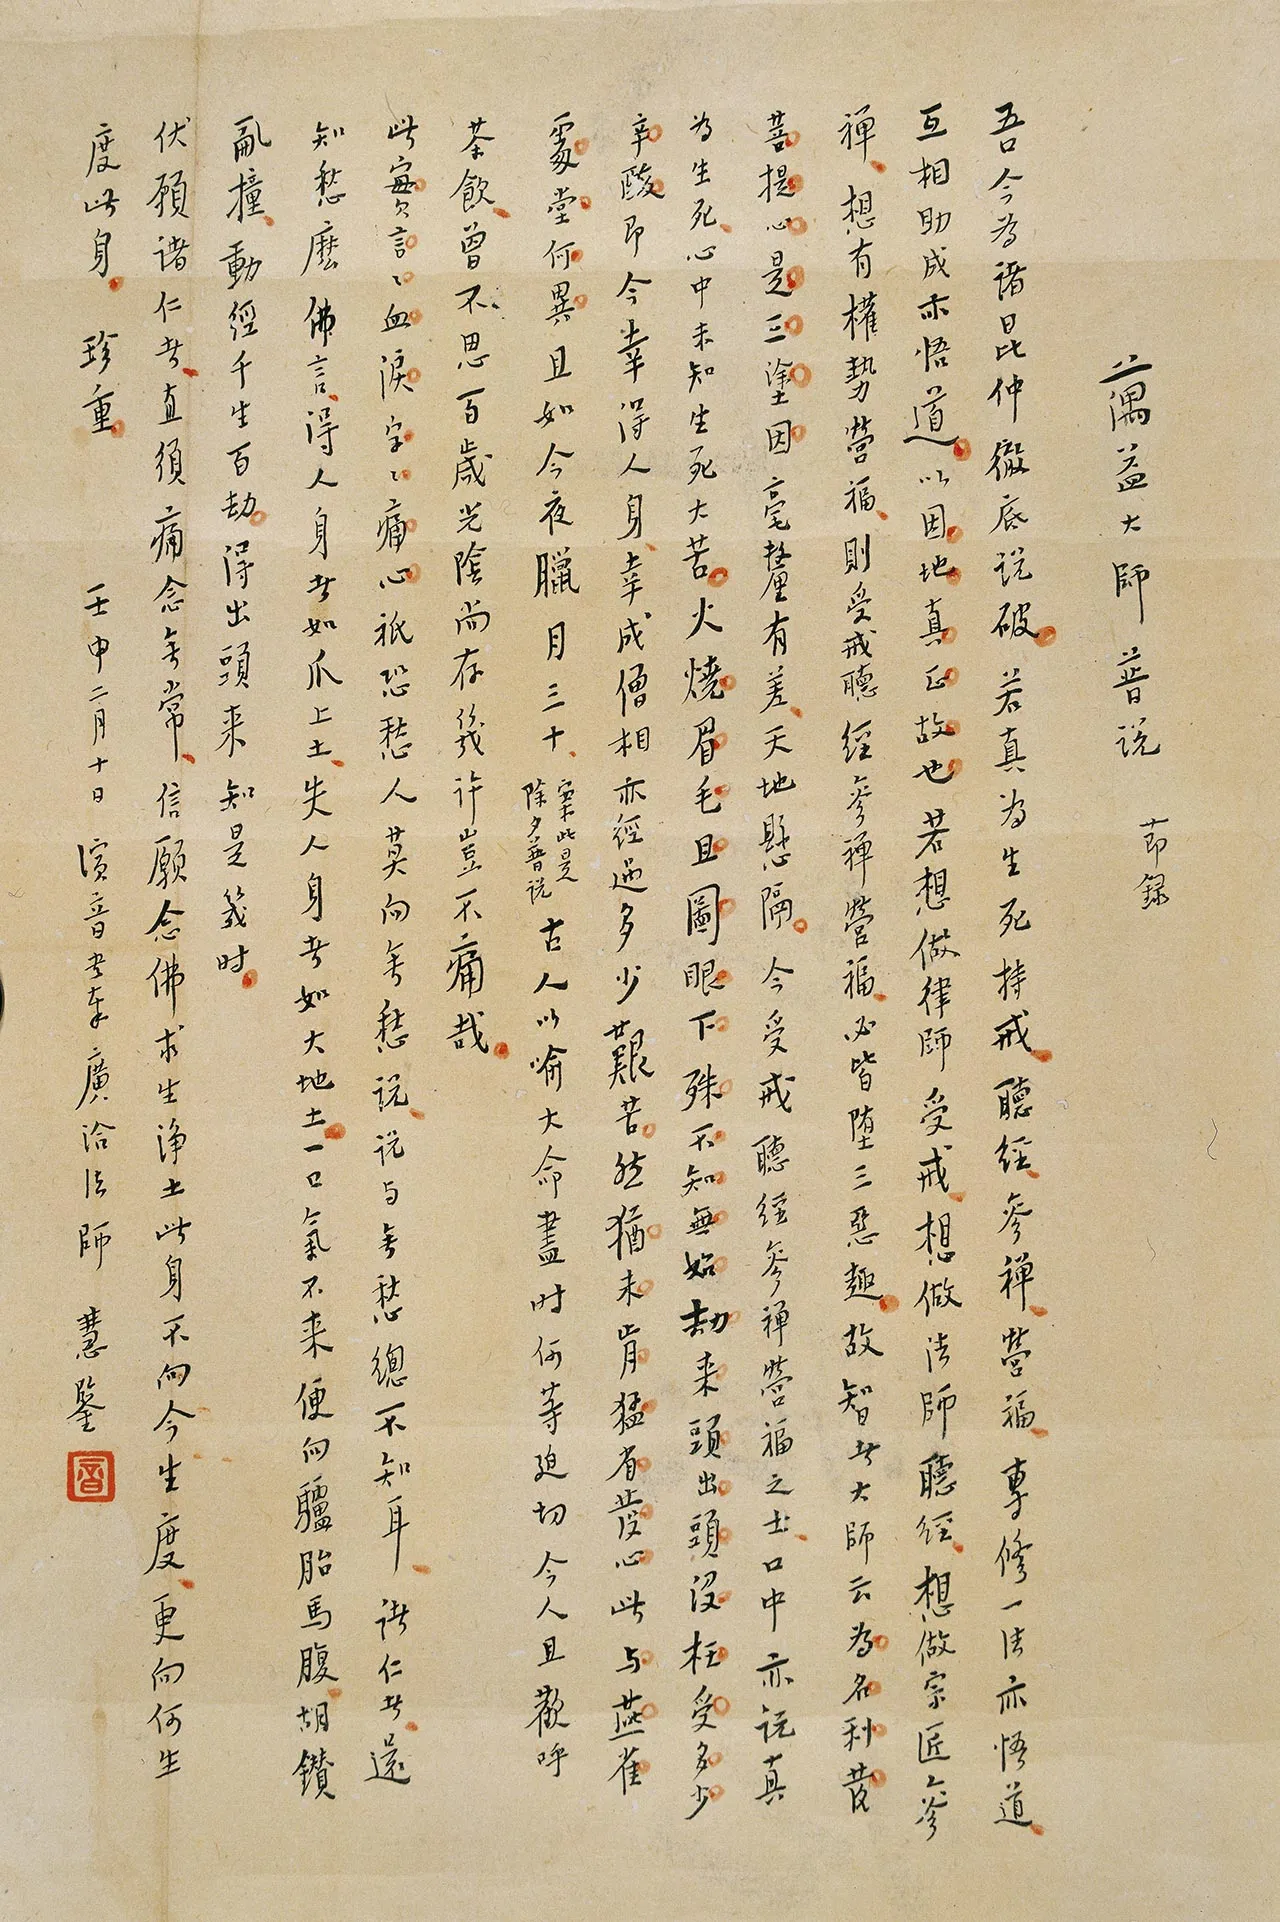 蕅益大師普說 節錄
吾今為諸昆仲徹底說破若真為生死持戒聽經參禪營福專修一法亦悟道
互相助成亦悟道以因地真正故也若想做律師受戒想做法師聽經想做宗匠參
禪想有權勢營福則受戒聽經參禪營福必皆墮三惡趣故智者大師云為名利發
菩提心是三塗因毫釐有差天地懸隔今受戒聽經參禪營福之士口中亦說真
為生死心中未知生死大苦火燒眉毛且圖眼下殊不知無始劫來頭出頭沒枉受多少
辛酸即今幸得人身幸成僧相亦經過多少艱苦然猶未肯猛省發心此與燕雀
處堂何異且如今夜臘月三十案此是除夕普說古人以喻大命盡時何等迫切今人且歡呼
茶飲曾不思百歲光陰尚存幾許豈不痛哉
此實言言血淚字字痛心祇恐愁人莫向無愁說說與無愁總不知耳諸仁者還
知愁麼佛言得人身者如爪上土失人身者如大地土一口氣不來便向驢胎馬腹胡鑽
亂撞動經千生百劫得出頭來知是幾時
伏願諸仁者直須痛念無常信願念佛求生淨土此身不向今生度更向何生
度此身 珍重 壬申二月十日演音書奉廣洽法師 慧鑒
音